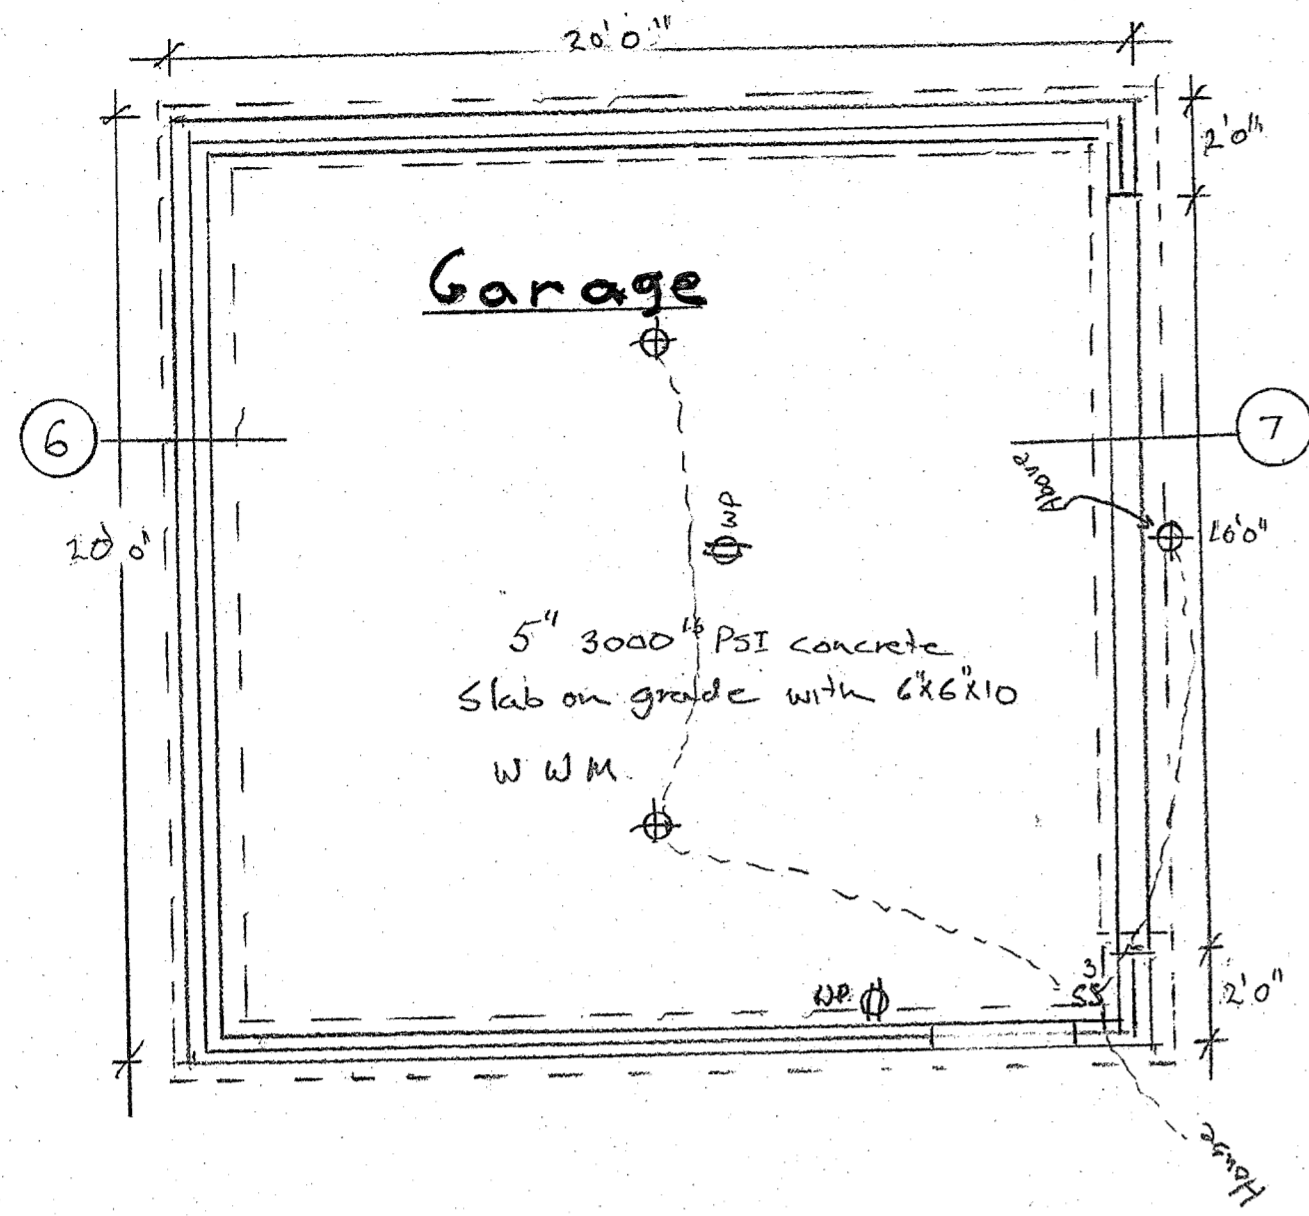 20' 0"
2' 0"
Garage
6
7
Above
WP
20' 0"
16' 0"
5" 3000 lb PSI concrete
Slab on grade with 6"x6"x10
W W M.
3
SS
WP
2' 0"
House